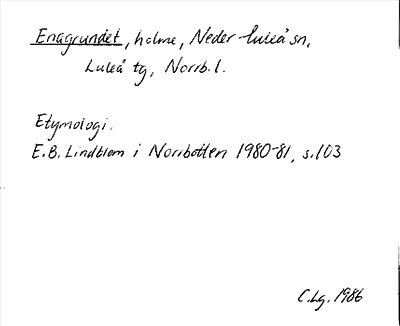 Enagrundet, holme, Neder-Luleå sn,
Luleå tg, Norrb. l.
Etymologi.
E.B. Lindblom i Norrbotten 1980-81, s. 103
C.Lg. 1986